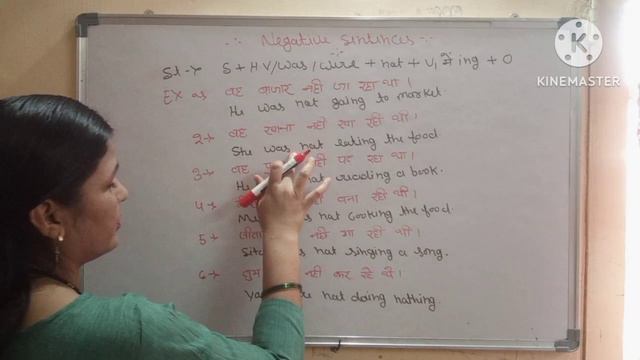 Negative sentences
St → S + HV/was/were + not + V₁ में ing + O
EX as वह बाजार नहीं जा रहा था।
He was not going to market.
2→ वह खाना नहीं खा रही थी।
She was not eating the food.
3→ वह नहीं पढ़ रहा था।
He not reading a book.
4→ बना रही थी।
not cooking the food.
5→ नहीं गा रही थी।
not singing a song.
6→ तुम नहीं कर रहे थे।
not doing nothing.
KINEMASTER